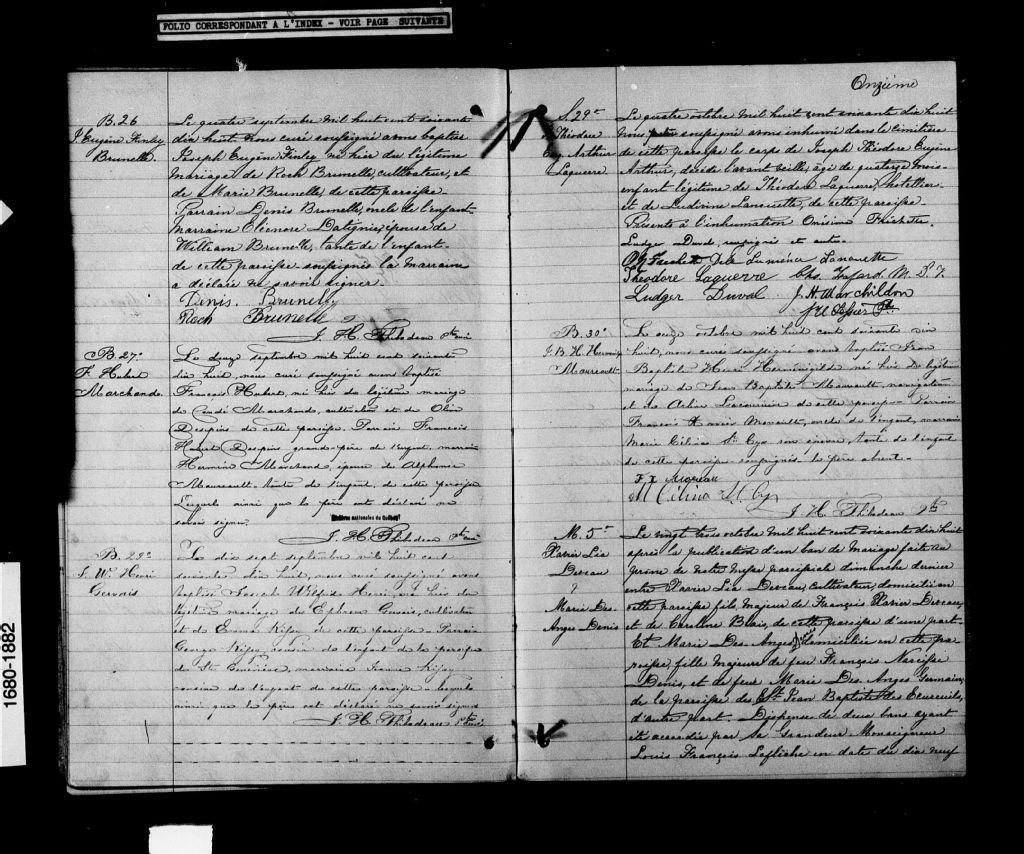 FOLIO CORRESPONDANT A L'INDEX - VOIR PAGE SUIVANTE
B. 26
J. Eugène Finley
Brunelle.
Le quatre septembre mil huit cent soixante
dix huit, nous curé soussigné avons baptisé
Joseph Eugène Finley né hier du légitime
mariage de Roch Brunelle, cultivateur, et
de Marie Brunelle, de cette paroisse.
Parrain Denis Brunelle, oncle de l'enfant
marraine Eleonore Datigny épouse de
William Brunelle, tante de l'enfant.
de cette paroisse soussignés la marraine
a déclaré ne savoir signer.
Denis Brunelle
Roch Brunelle
J. H. Thibodeau Ptre curé
B. 27.
F. Hubert
Marchand.
Le douze septembre mil huit cent soixante
dix huit, nous curé soussigné avons baptisé
François Hubert, né hier du légitime mariage
de Marchand, cultivateur et de
Despins de cette paroisse. Parrain François
Hubert Despins grand-père de l'enfant, marraine
Herminie Marchand, épouse de Alphonse
Maureault tante de l'enfant, de cette paroisse
Lesquels ainsi que le père ont déclaré ne
savoir signer.
Archives nationales du Québec
J. H. Thibodeau Ptre curé
B. 28.
J. W. Henri
Gervais
Le dix sept septembre mil huit cent
soixante dix huit, nous curé soussigné avons
baptisé Joseph Wilfrid Henri, né hier du
légitime mariage de Ephrem Gervais, cultivateur
et de Emma de cette paroisse. Parrain
George cousin de l'enfant de la paroisse
de Ste marraine
cousine de l'enfant de cette paroisse lesquels
ainsi que le père ont déclaré ne savoir signer
J. H. Thibodeau Ptre curé
1680-1882
Onzième
S. 29e
Js Théodore
Eug. Arthur
Laquerre
Le quatre octobre mil huit cent soixante dix huit
Nous soussigné avons inhumé dans le cimetière
de cette paroisse le corps de Joseph Théodore Eugène
Arthur, décédé l'avant veille, âgé de quatorze mois
enfant légitime de Théodore Laquerre, hotellier
et de Ludivine Lanouette, de cette paroisse.
Présents à l'inhumation Onésime Frichette,
Ludger Duval, soussignés et autres.
Lumina Lanouette
Théodore Laquerre
Ludger Duval J. H. Marchildon
B. 30e
J. B. H. Herménégilde
Maureault
Le onze octobre mil huit cent soixante dix
huit, nous curé soussigné avons baptisé Jean
Baptiste Henri Herménégilde né hier du légitime
mariage de Jean Baptiste Maureault, navigateur
et de de cette paroisse. Parrain
François Xavier Maureault, oncle de l'enfant, marraine
Marie Célina St Cyr son épouse, tante de l'enfant
de cette paroisse soussignés. le père absent.
F X Moreau
M Célina St Cyr
J. H. Thibodeau Ptre
M. 5e
Xavier Léa
Deveau
&
Marie Des
Anges Denis
Le vingt trois octobre mil huit cent soixante dix huit
après la publication d'un ban de mariage faite au
prône de notre messe paroissiale dimanche dernier
entre Xavier Léa Deveau, cultivateur, domicilié en
cette paroisse fils majeur de François Xavier Deveau,
et de Caroline Blais, de cette paroisse d'une part
Et Marie Des Anges domiciliée en cette pa-
roisse, fille majeure de feu François Narcisse
Denis, et de feue Marie Des Anges Germain,
de la paroisse de St Jean Baptiste des Ecureuils,
d'autre part. Dispense de deux bans ayant
été accordée par Sa Grandeur Monseigneur
Louis François Laflèche en date du dix neuf